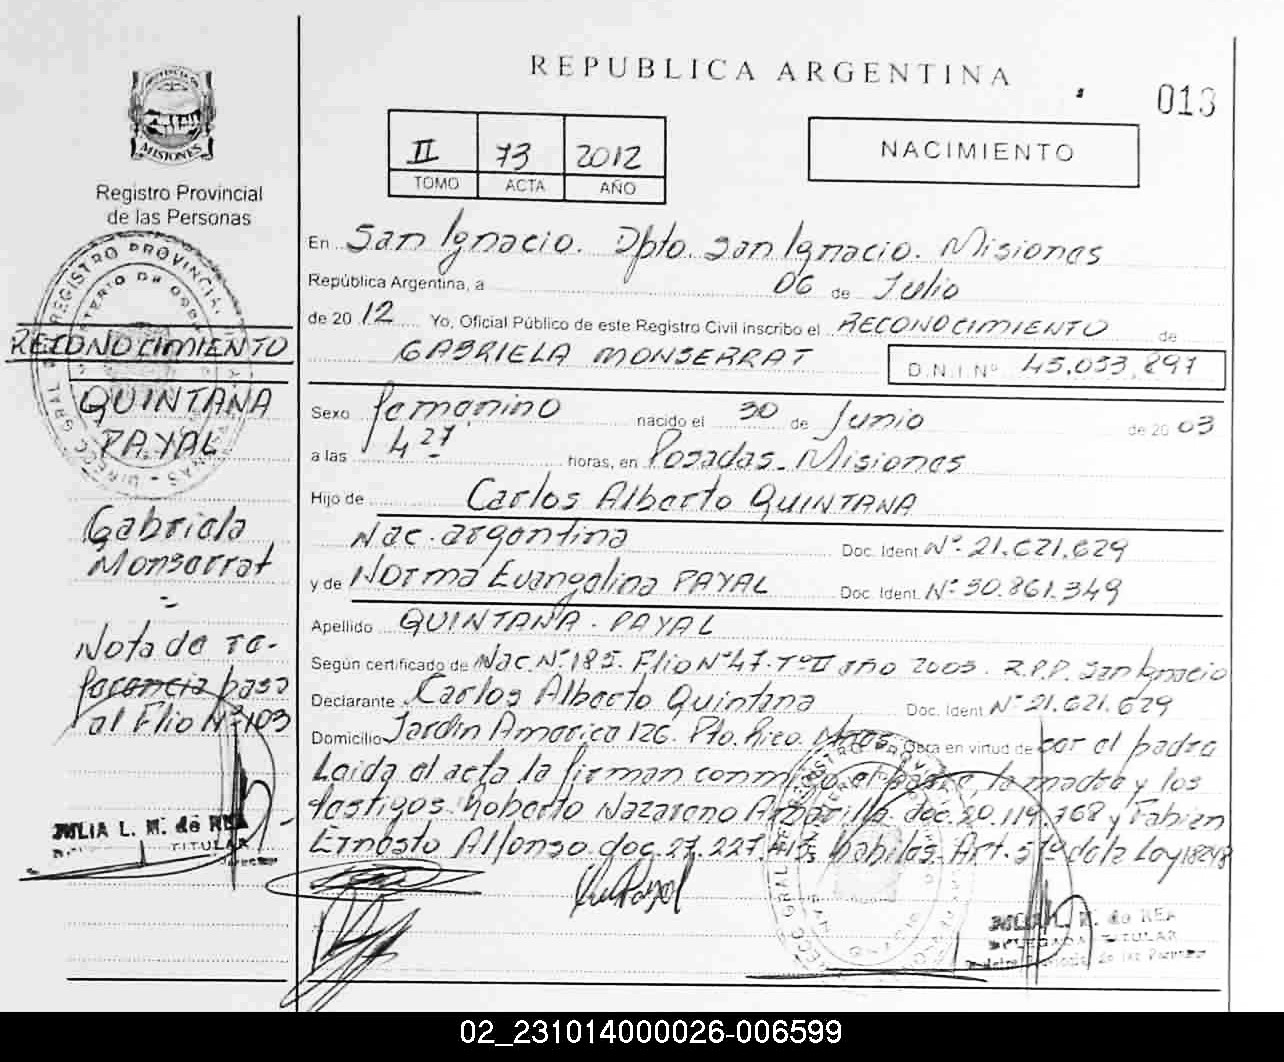 REPUBLICA ARGENTINA
013
PROVINCIA DE
MISIONES
Registro Provincial
de las Personas
II 73 2012
TOMO ACTA AÑO
NACIMIENTO
En San Ignacio. Dpto. San Ignacio. Misiones
República Argentina, a 06 de Julio
de 20 12 Yo, Oficial Público de este Registro Civil inscribo el RECONOCIMIENTO de
GABRIELA MONSERRAT D.N.I.Nº 45.033.897
Sexo femenino nacido el 30 de Junio de 20 03
a las 4 27 horas, en Posadas. Misiones
Hijo de Carlos Alberto QUINTANA
Nac. argentina Doc. Ident. Nº 21.621.629
y de Norma Evangelina PAYAL Doc. Ident. Nº 30.861.349
Apellido QUINTANA - PAYAL
Según certificado de Nac. Nº 185. Flio Nº 47. Tº II año 2003. R.P.P. San Ignacio
Declarante Carlos Alberto Quintana Doc. Ident. Nº 21.621.629
Domicilio Jardin America 126. Pto. Rico. Mnes. Obra en virtud de ser el padre
Leida el acta la firman conmigo el padre, la madre y los
testigos. Roberto Nazareno doc. 20.119.768 y Fabian
Ernesto Alfonso doc. 27.227. habiles. Art. 5º de la Ley 18248
RECONOCIMIENTO
QUINTANA
PAYAL
Gabriela
Monserrat
Nota de re-
ferencia pase
al Flio Nº 103
JULIA L. M. de REA
TITULAR
REGISTRO PROVINCIAL
JULIA L. M. de REA
DELEGADA TITULAR
02_231014000026-006599